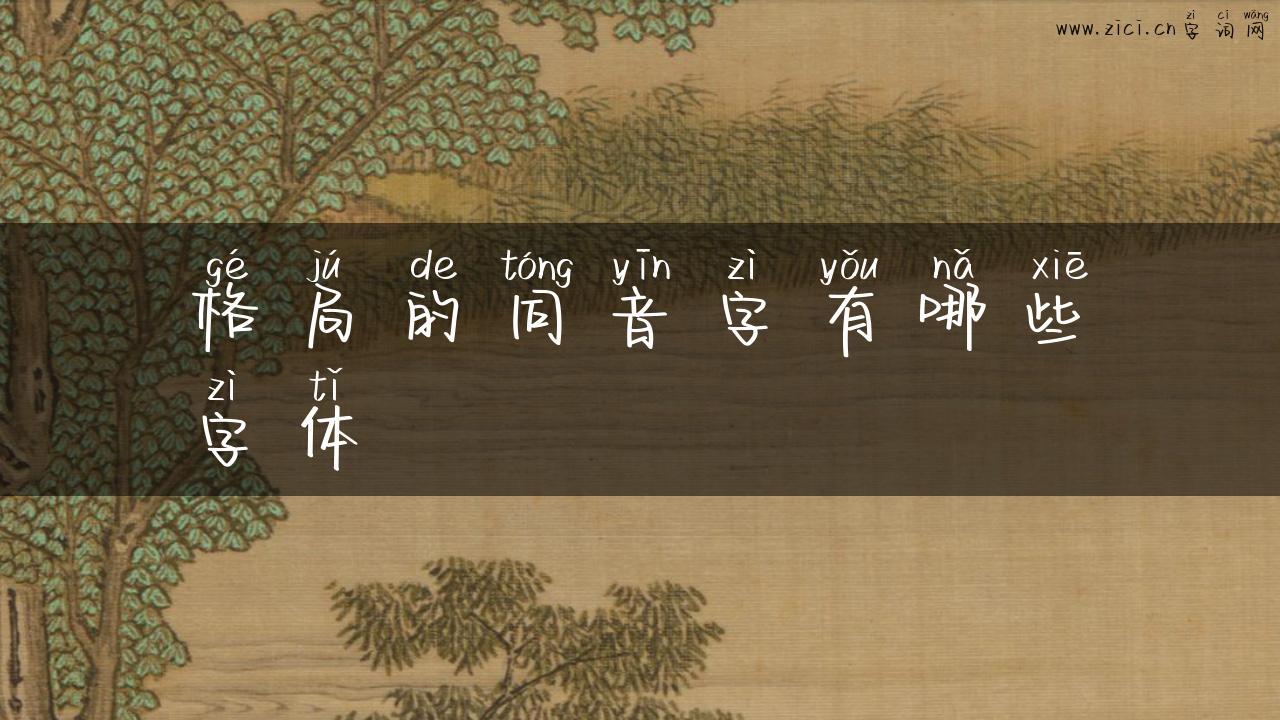 zì cí wǎng
www.zici.cn 字词网
gé jú de tóng yīn zì yǒu nǎ xiē
格局的同音字有哪些
zì tǐ
字体